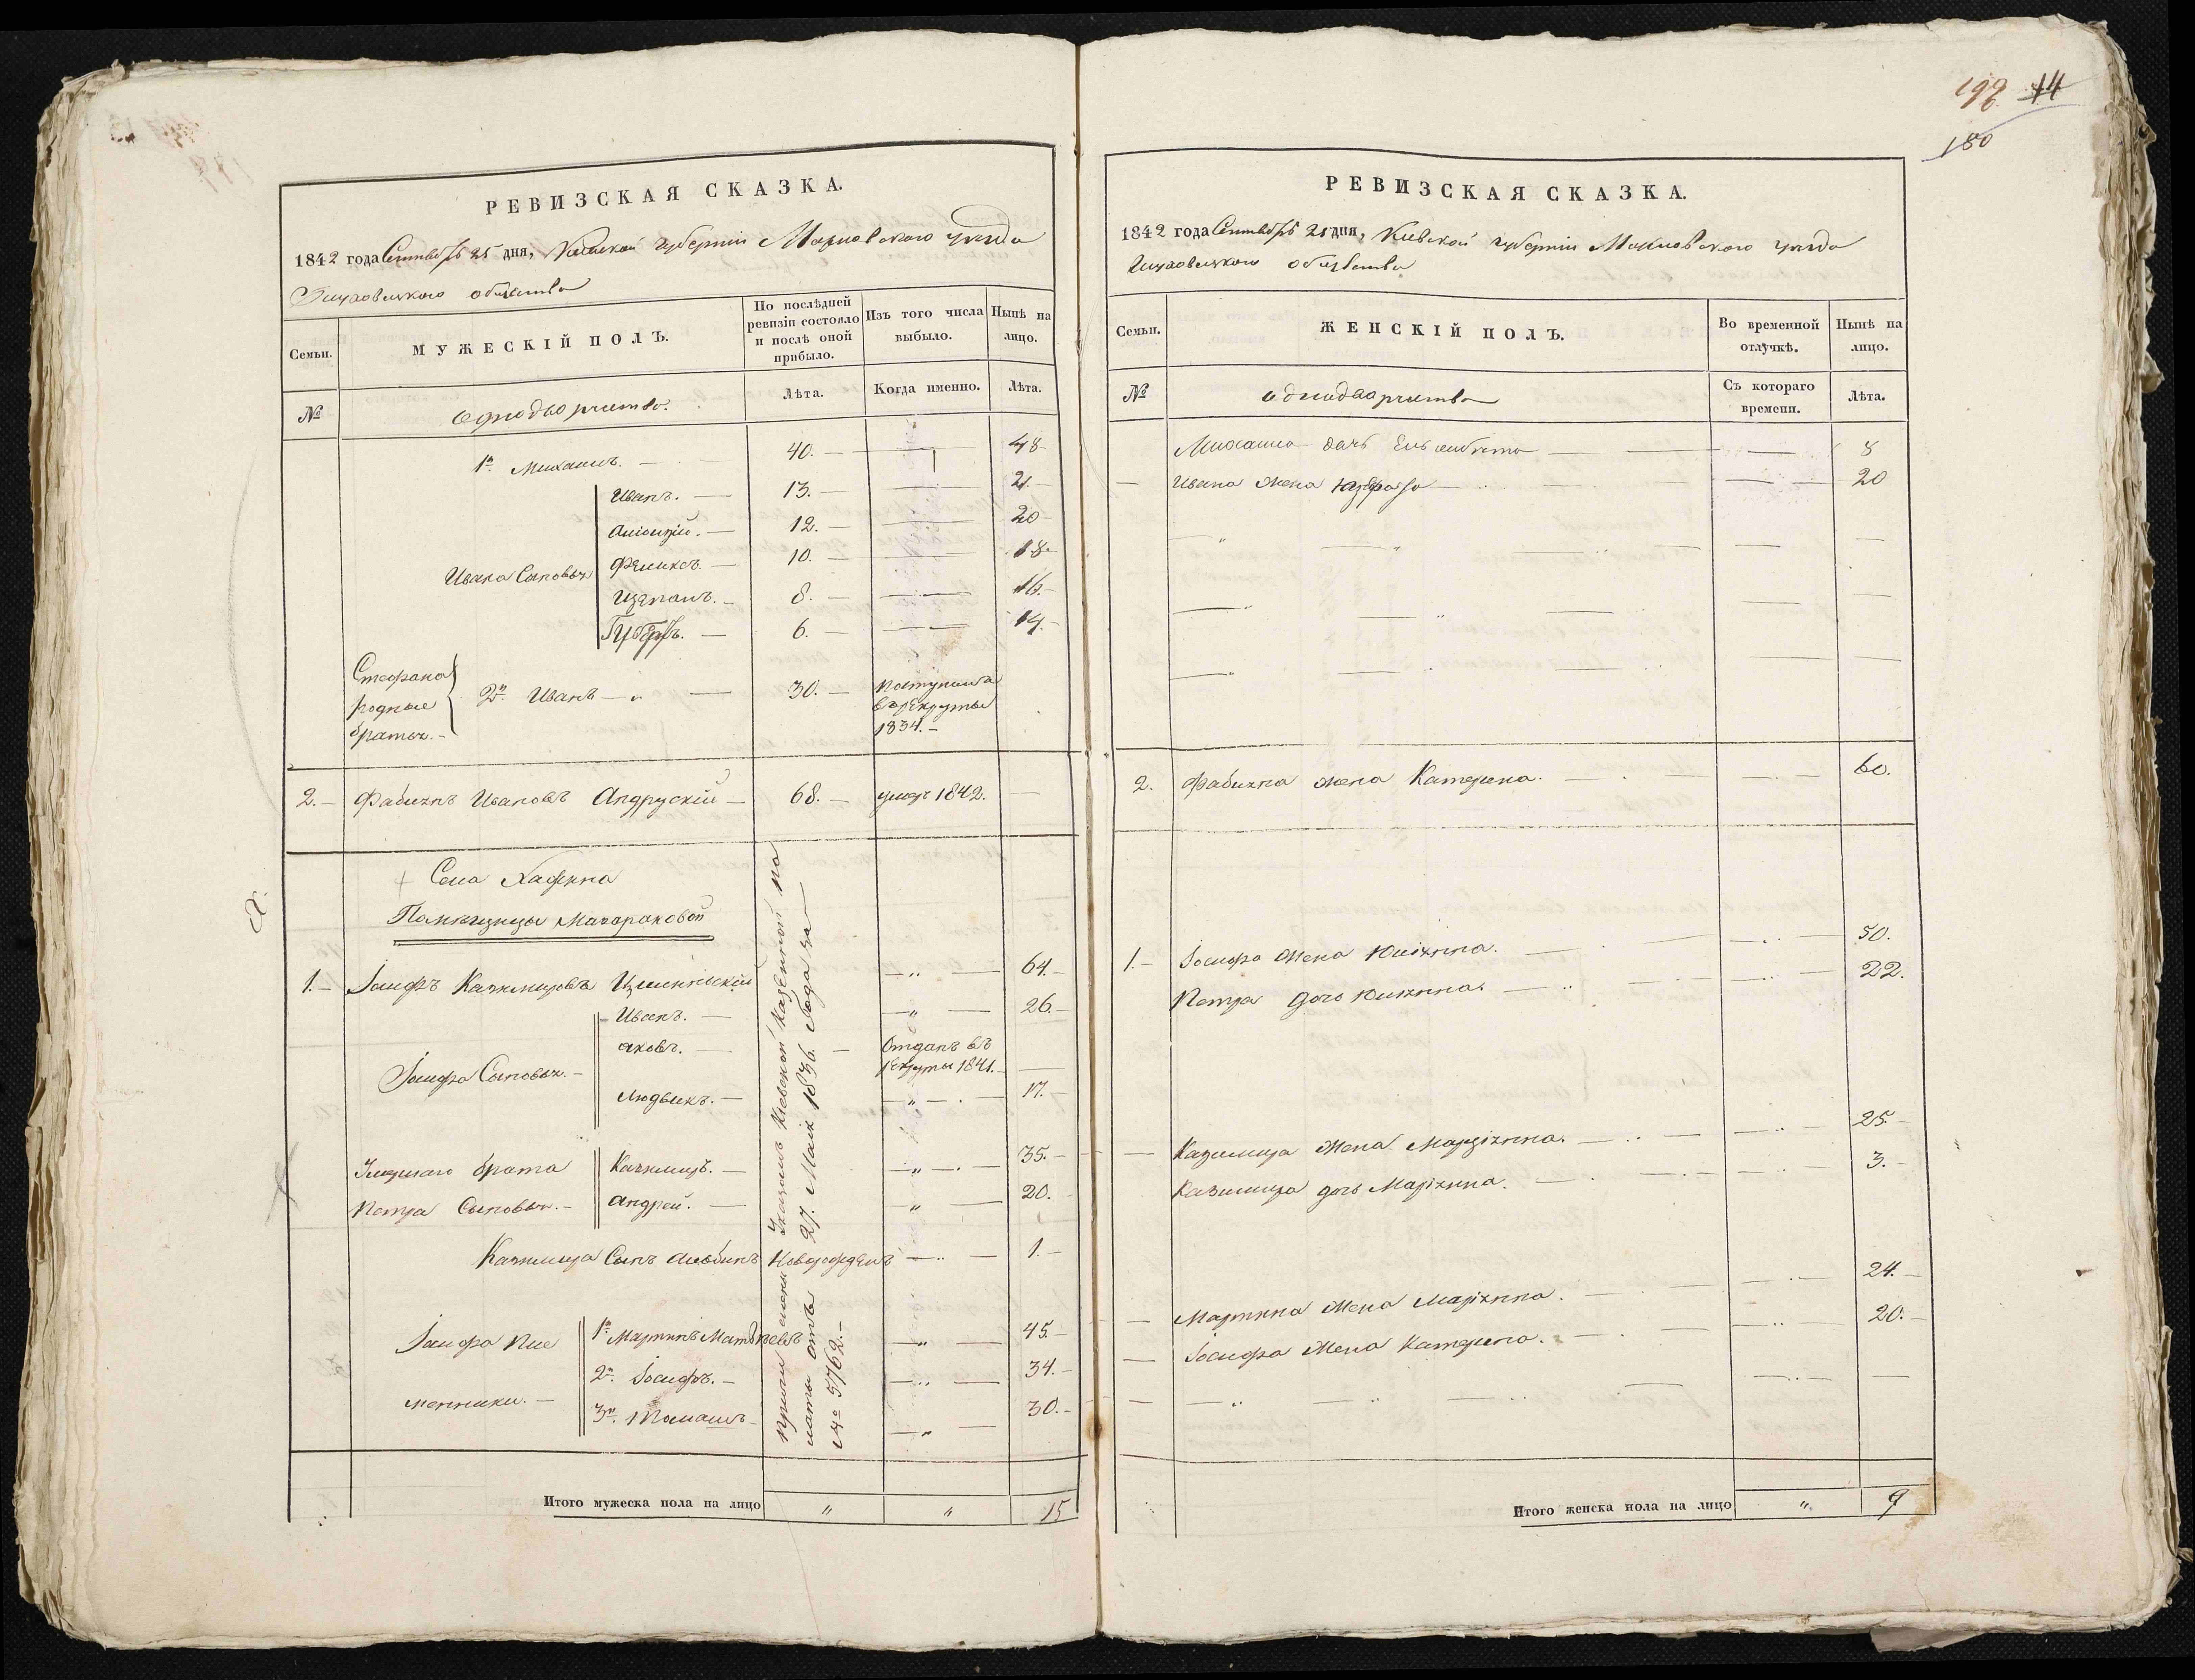 РЕВИЗСКАЯ СКАЗКА.
1842 года Сентября 25 дня, Киевской губернии Махновского уезда
общества
Семьи.
МУЖЕСКІЙ ПОЛЪ.
По послѣдней ревизіи состояло и послѣ оной прибыло.
Изъ того числа выбыло.
Нынѣ на лицо.
№
Однодворчество.
Лѣта.
Когда именно.
Лѣта.
1й Михаилъ. — 40. — 48
Иванъ. — 13. — 21
12. — 20
Феликсъ. — 10. — 18
Ивана Сыновья
Щепанъ. — 8. — 16.
6. — 19.
Стефана родные братья. —
2й Иванъ — 30. — поступилъ в рекруты 1834. —
2. — Фабіянъ Ивановъ Андрускій — 68. — умер 1842. —
Села
Помѣщицы
1. — Іосифъ Казимировъ — 64. —
Иванъ. — 26. —
Яковъ. — Отданъ въ рекруты 1841. —
Іосифа Сыновья. —
Людвикъ. — 17. —
брата
Петра Сыновья. —
Казимиръ. — 35. —
Андрей. — 20. —
Казимира Сынъ Новорожденъ — 1. —
Іосифа пле
менники. —
1й Мартинъ — 45. —
2й Іосифъ. — 34. —
3й Томашъ — 30. —
Указомъ Киевской Казенной
27. Мая 1836. Года за
№ 5762. —
Итого мужеска пола на лицо
" " 15
198 14
180
РЕВИЗСКАЯ СКАЗКА.
1842 года Сентября 25 дня, Киевской губернии Махновского уезда
общества
Семьи.
ЖЕНСКІЙ ПОЛЪ.
Во временной отлучкѣ.
Нынѣ на лицо.
№
однодворчество
Съ котораго времени.
Лѣта.
Михаила дочь Елисавета — 8
— Ивана жена — 20
2. Фабіяна жена Катерина. — 60.
1. — Іосифа жена Юліянна. — 50.
Петра дочь Юліянна. — 22.
— Казимира жена Маріянна. — 25. —
Казимира дочь Маріянна. — 3. —
— Мартина жена Маріянна. — 24. —
— Іосифа жена Катерина. — 20. —
Итого женска пола на лицо
" 9